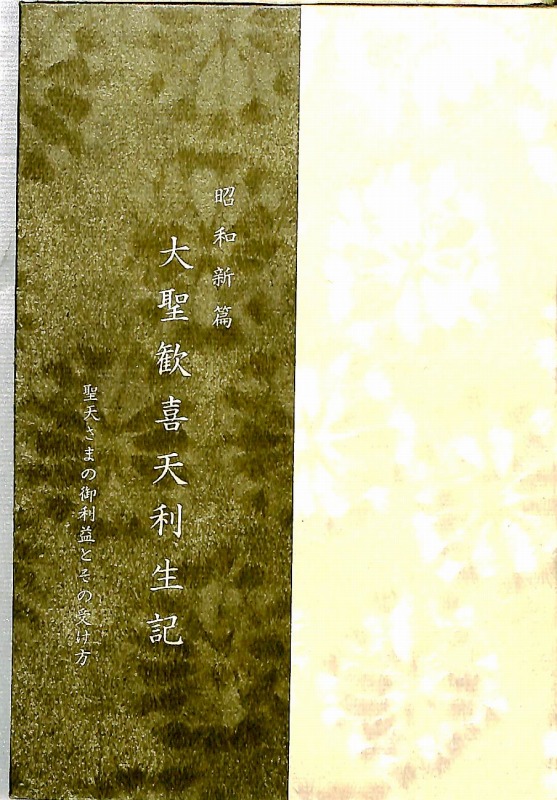 昭和新篇
大聖歓喜天利生記
聖天さまの御利益とその受け方